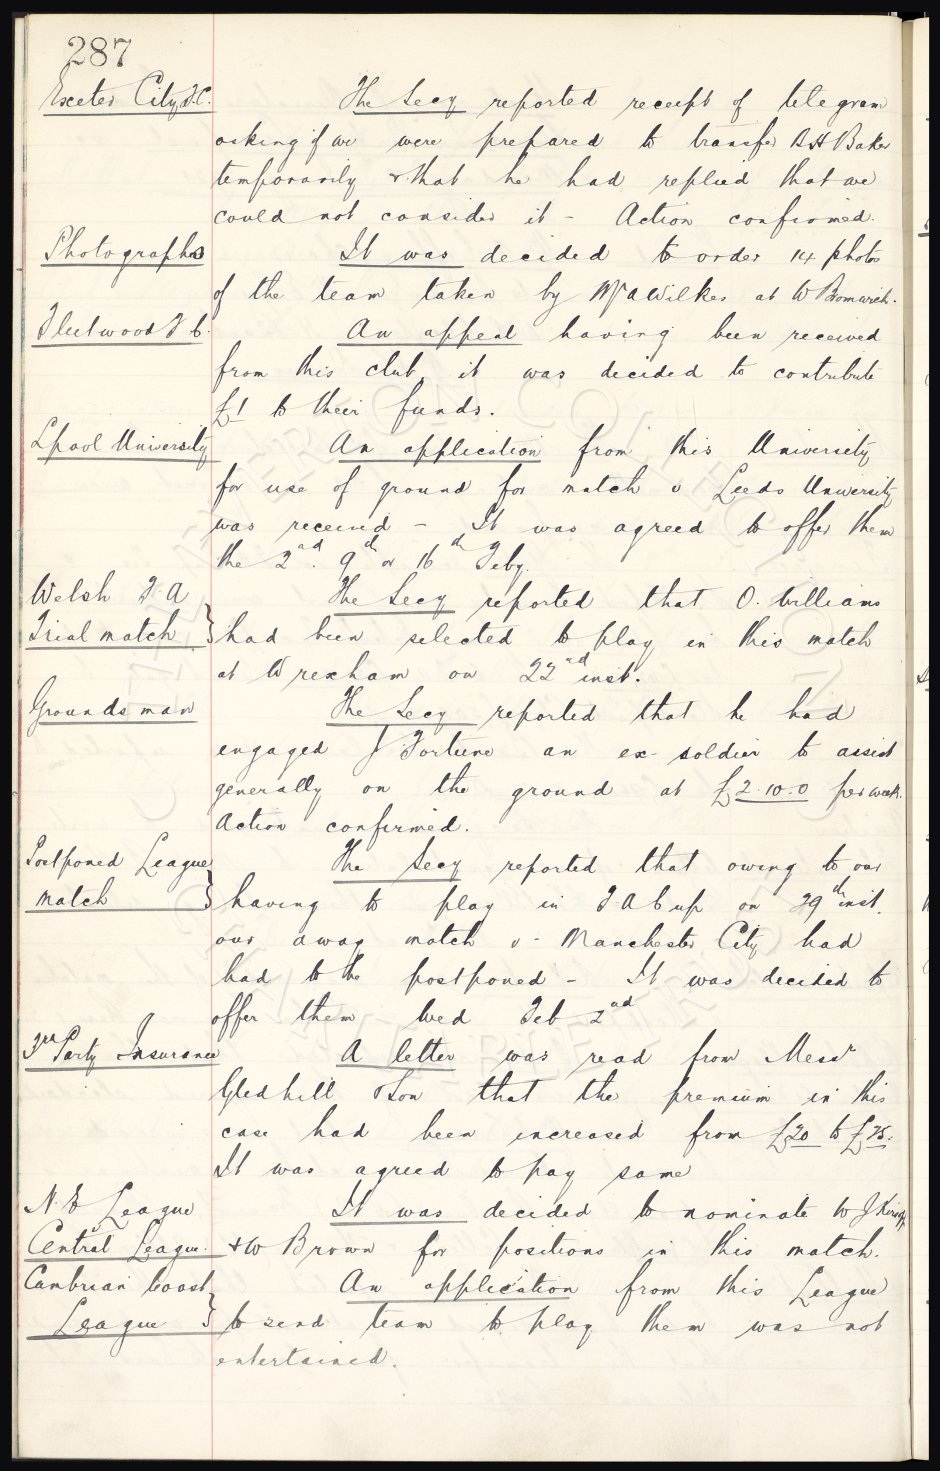 287
Exeter City F.C. The Secy reported receipt of telegram
asking if we were prepared to transfer B H Baker
temporarily & that he had replied that we
could not consider it - Action confirmed.
Photographs It was decided to order 14 photos
of the team taken by Mr A Wilkes at W Bromwich.
Fleetwood F C. An appeal having been received
from this club it was decided to contribute
£1 to their funds.
Lpool University An application from this University
for use of ground for match v Leeds University
was received - It was agreed to offer them
the 2nd. 9th or 16th Feby.
Welsh F. A The Secy reported that O. Williams
Trial match } had been selected to play in this match
at Wrexham on 22nd inst.
Groundsman The Secy reported that he had
engaged J Fortune an ex-soldier to assist
generally on the ground at £2.10.0 per week.
Action confirmed.
Postponed League The Secy reported that owing to our
match } having to play in F A Cup on 29th inst.
our away match v - Manchester City had
had to the postponed - It was decided to
offer them Wed Feb 2nd
3rd Party Insurance A letter was read from Messrs
Gledhill & Son that the premium in this
case had been increased from £20 to £25.
It was agreed to pay same
N. E League It was decided to nominate W J Kirsopp
v
Central League. & W Brown for positions in this match.
Cambrian Coast An application from this League
League } to send team to play them was not
entertained.